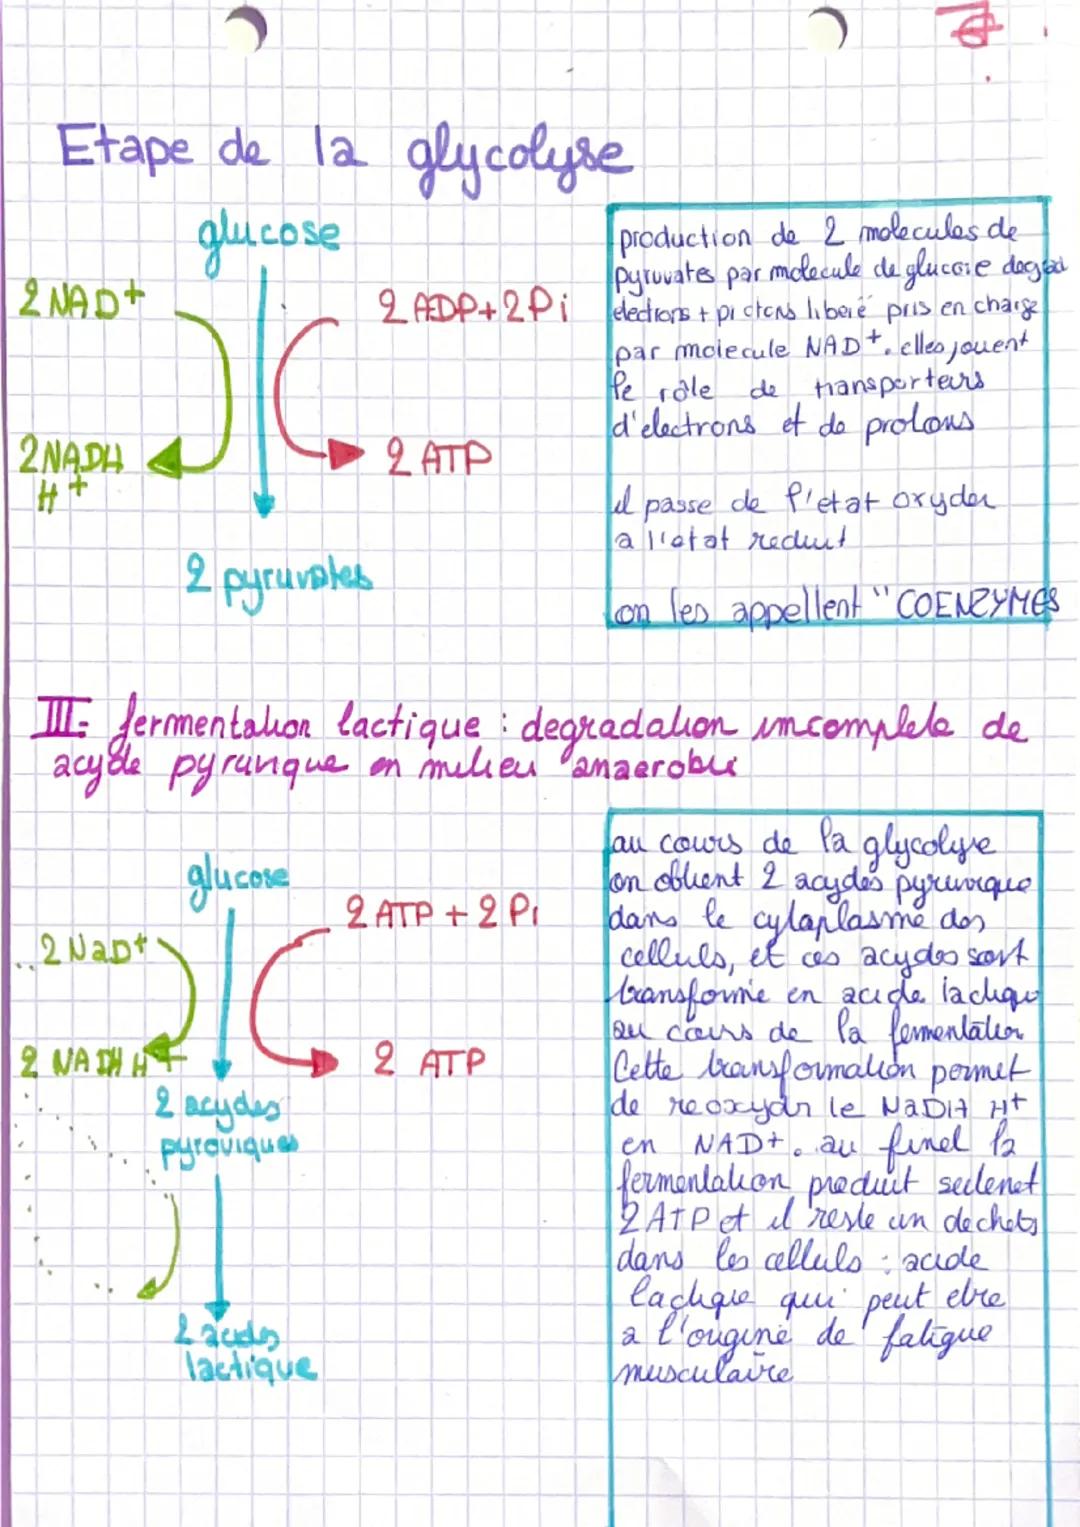 Etape de la glycolyse
glucose
2 NAD+
2 ADP+2Pi
2NADH
H+
2 ATP
2 pyruvates
production de 2 molecules de
pyruvates par molecule de glucose degrad
electrons + protons liberé pris en charge
par molecule NAD+. elles jouent
le rôle de transporteurs
d'electrons et de protons
il passe de l'etat oxyder
a l'etat reduit
on les appellent "COENZYMES
III: fermentation lactique : degradation incomplete de
acyde pyruvique en milieu anaerobie
glucose
2 ATP + 2 Pi
2 NaD+
2 NADH H+
2 ATP
2 acydes
pyroviques
2 acides
lactique
au cours de la glycolyse
on obtient 2 acydes pyruvique
dans le cytaplasme des
celluls, et ces acydes sont
transformie en acide lactique
au cours de la fermentation
Cette transformation permet
de reoxydr le NaDH H+
en NAD+. au finel la
fermentation produit seulenet
2 ATP et il reste un dechets
dans les celluls : acide
lactique qui peut etre
a l'origine de fatigue
musculaire